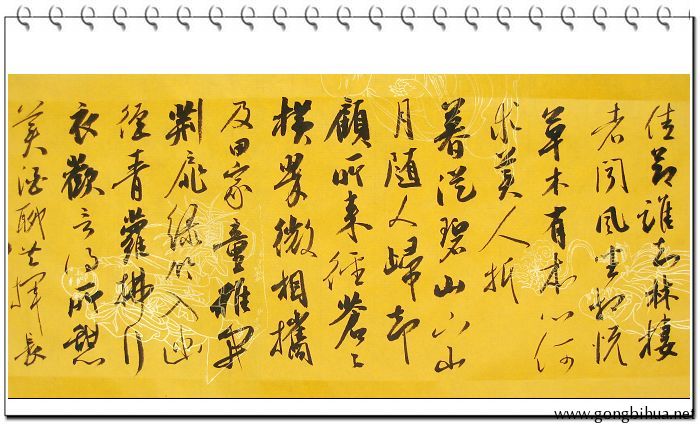 佳节谁知林棲
者闻風坐相悦
草木有本心何
求美人折
暮從碧山下山
月随人歸却
顧所来徑蒼々
横翠微相攜
及田家童稚开
荆扉绿竹入幽
徑青蘿拂行
衣歡言得所憩
美酒聊共揮長
www.gongbihua.net